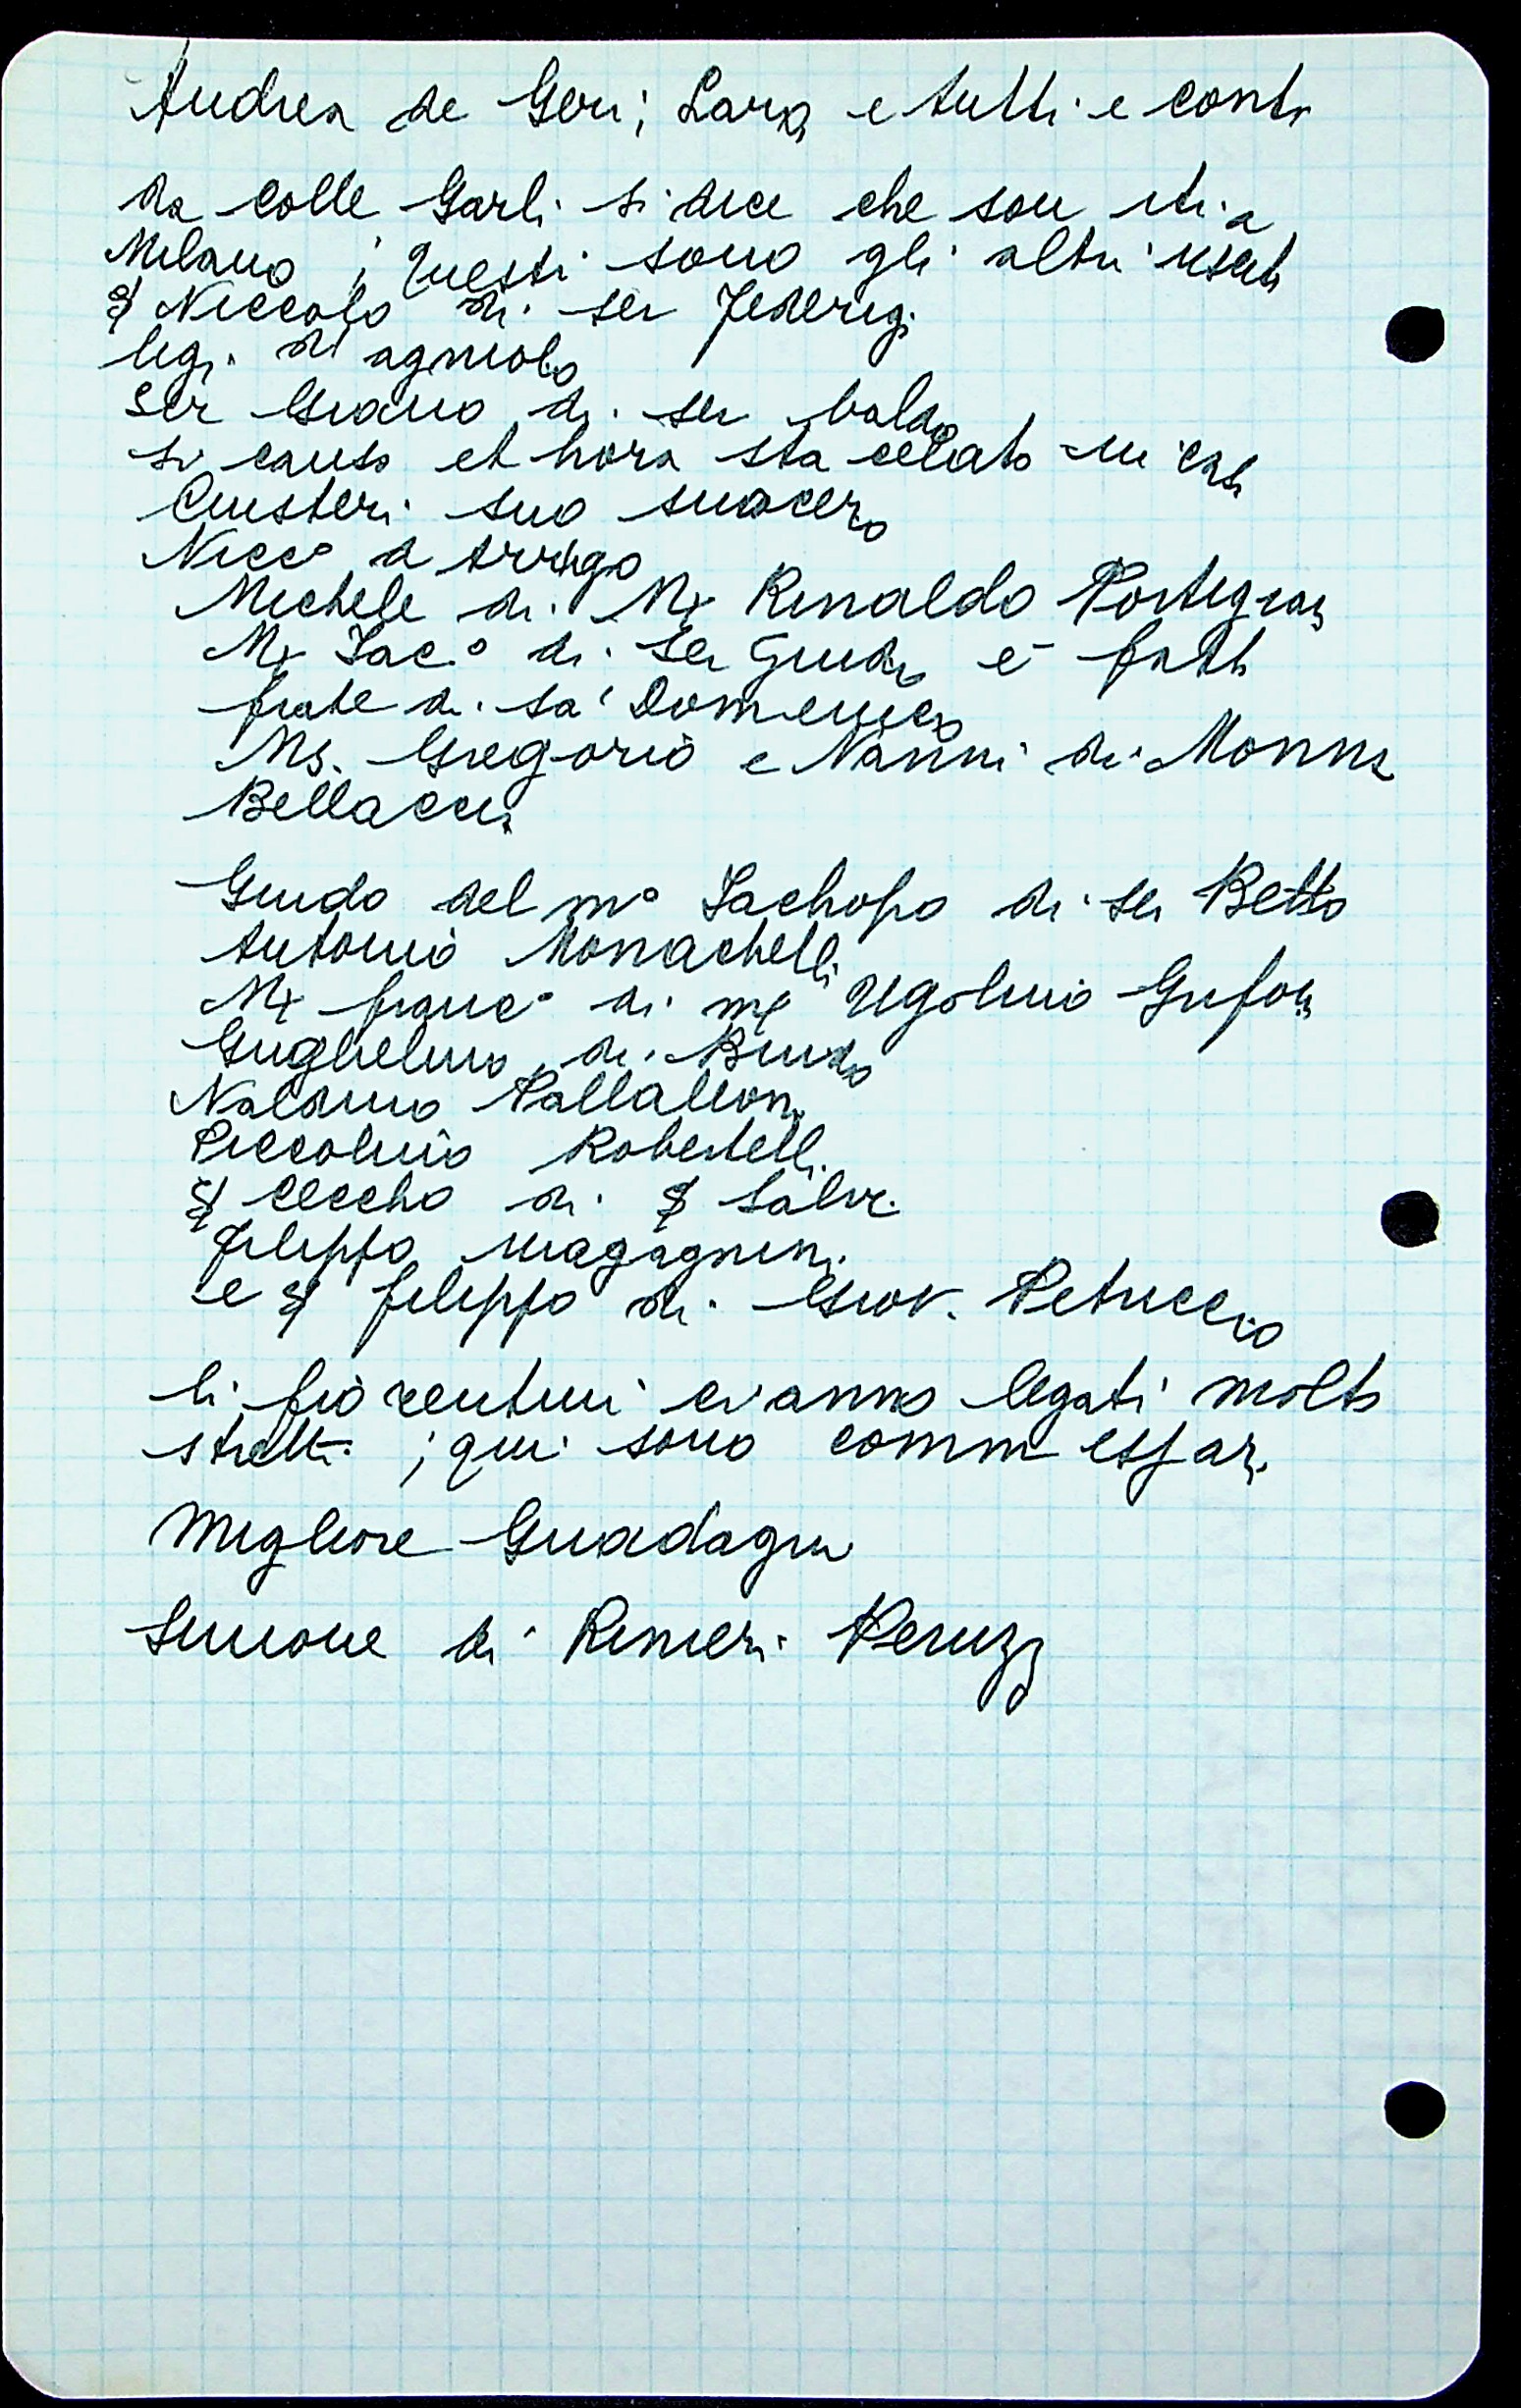 Andrea de Geri; Lara e tutti e conti
da colle Garli si dice che son iti a
Milano; Questi sono gli altri usciti
Niccolo di ser Federigi
ligi di agniolo
Ser Giovano di ser baldo
si canso et hora sta celato in casa
Cinsteri suo suocero
Nicc° d Arrigo
Michele di Mx Rinaldo Portigiani
Mx Jac.° di ser Guido e fatto
frate di sa Domenico
Ms. Gregorio e Nanni di Monna
Bellaccia
Guido del m° Jachopo di ser Betto
Antonio Monachelli
Mx franc° di mx Ugolino Grifoni
Guglielmo di Bindo
Naldino Pallaleoni
Piccolino Robertelli
Ceccho di Salvi
Filippo magagnini
e filippo di Giov. Petruccio
li fiorentini ci anno legati molto
stretti; qui sono commessari
Migliore Guadagni
Simone di Rinieri Peruzzi